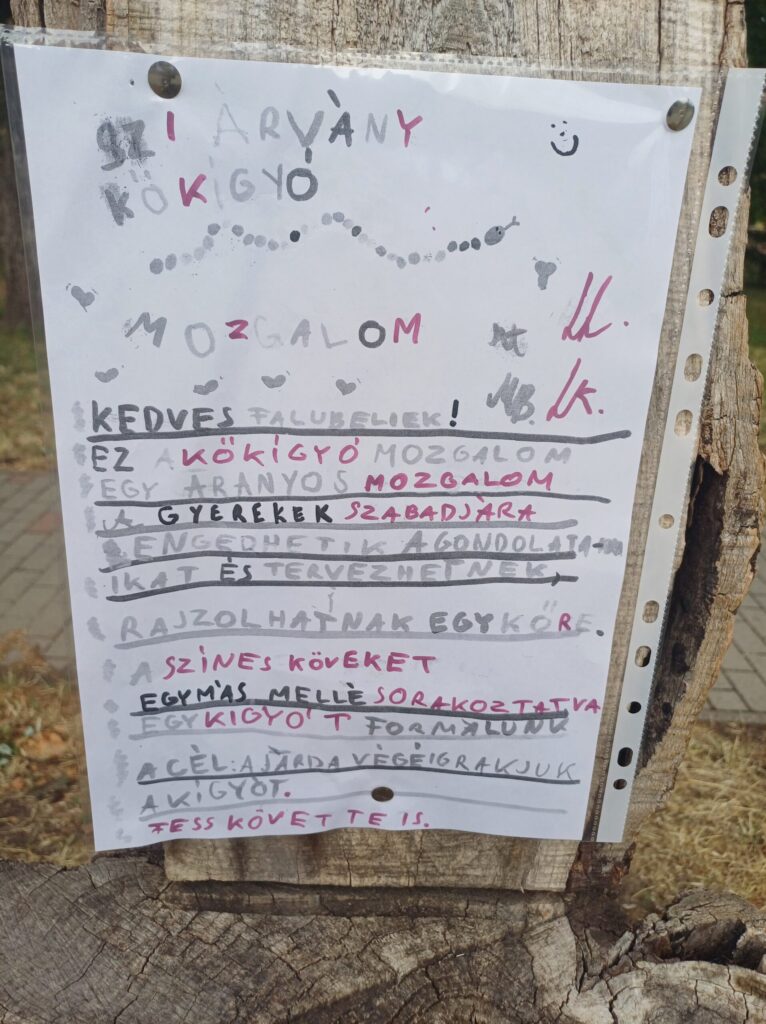 SZIÀRVÀNY
KÖKIGYÓ
MOZGALOM
M.B. L.K.
KEDVES FALUBELIEK!
EZ A KÖKÍGYÓ MOZGALOM
EGY ARANYOS MOZGALOM
A GYEREKEK SZABADJÀRA
ENGEDHETIK A GONDOLATA-
IKAT ÉS TERVEZHETNEK,
RAJZOLHATNAK EGY KÖRE.
A SZINES KÖVEKET
EGYMÀS MELLÈ SORAKOZTATVA
EGY KIGYÓT FORMÀLUNK
A CÈL: A JÀRDA VÉGÉIG RAKJUK
A KÌGYÓT.
FESS KÖVET TE IS.